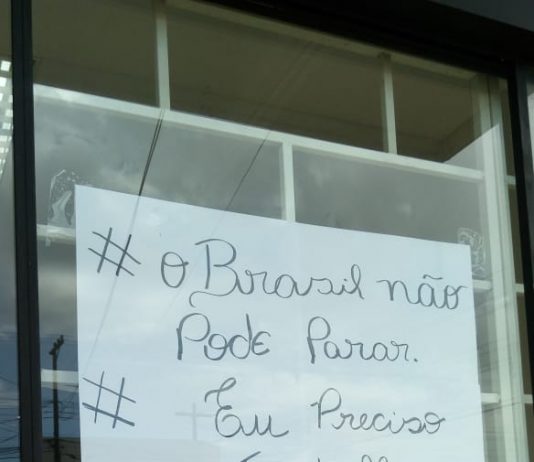 # o Brasil não
Pode Parar.
# Eu Preciso